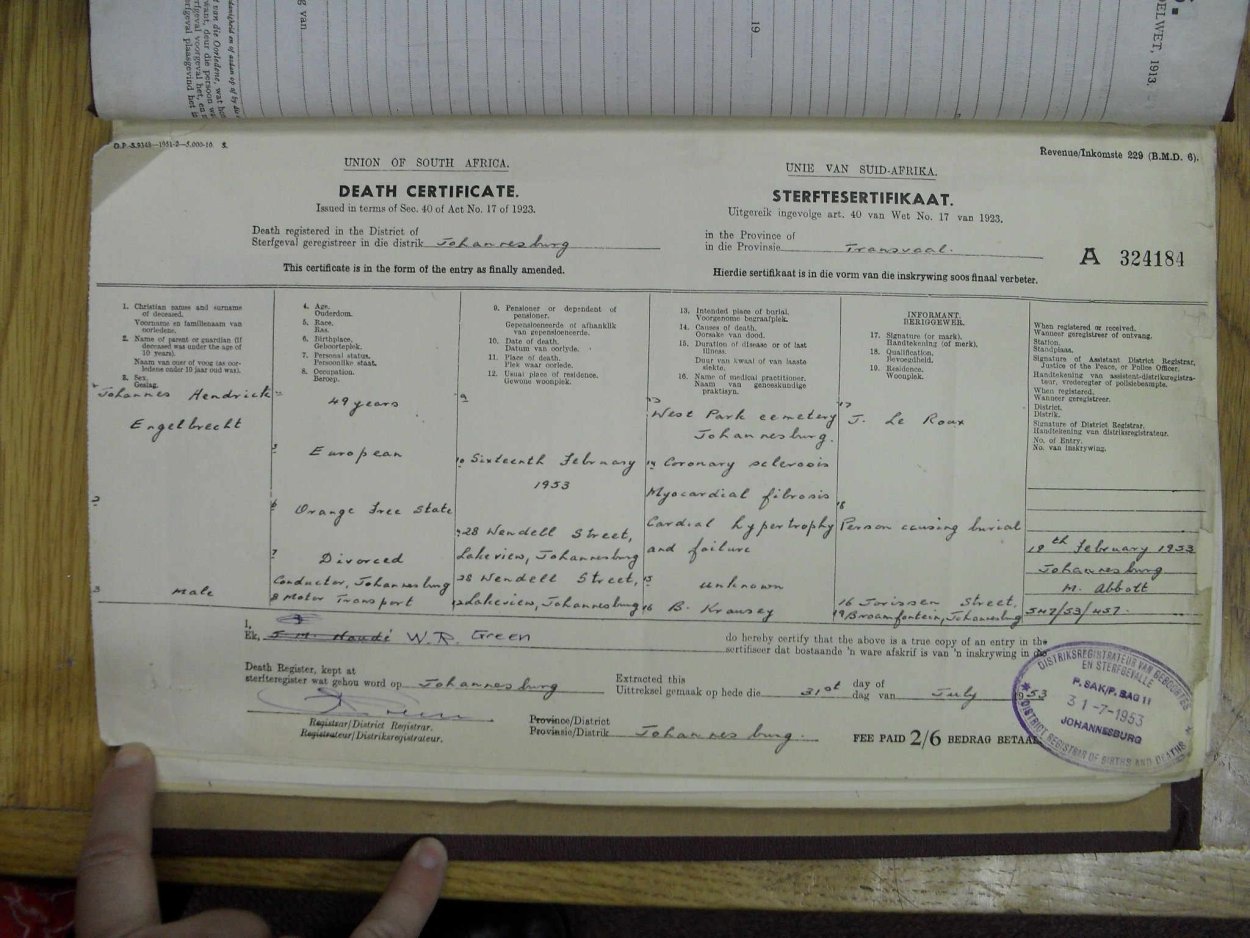 19
ELWET, 1913.
g van
G.P.-S.9348—1951-2—5,000-10. S.
Revenue/Inkomste 229 (B.M.D. 6).
UNION OF SOUTH AFRICA.
DEATH CERTIFICATE.
Issued in terms of Sec. 40 of Act No. 17 of 1923.
UNIE VAN SUID-AFRIKA.
STERFTESERTIFIKAAT.
Uitgereik ingevolge art. 40 van Wet No. 17 van 1923.
Death registered in the District of
Sterfgeval geregistreer in die distrik Johannesburg
in the Province of
in die Provinsie Transvaal.
A 324184
This certificate is in the form of the entry as finally amended.
Hierdie sertifikaat is in die vorm van die inskrywing soos finaal verbeter.
1. Christian names and surname
of deceased.
Voorname en familienaam van
oorledene.
2. Name of parent or guardian (if
deceased was under the age of
10 years).
Naam van ouer of voog (as oor-
ledene onder 10 jaar oud was).
3. Sex.
Geslag.
Johannes Hendrick
Engelbrecht
2
3 Male
4. Age.
Ouderdom.
5. Race.
Ras.
6. Birthplace.
Geboorteplek.
7. Personal status.
Persoonlike staat.
8. Occupation.
Beroep.
49 years
5 European
6 Orange Free State
7 Divorced
Conductor, Johannesburg
8 Motor Transport
9. Pensioner or dependent of
pensioner.
Gepensioeneerde of afhanklik
van gepensioeneerde.
10. Date of death.
Datum van oorlyde.
11. Place of death.
Plek waar oorlede.
12. Usual place of residence.
Gewone woonplek.
9
10 Sixteenth February
1953
28 Wendell Street,
Lakeview, Johannesburg
28 Wendell Street,
12 Lakeview, Johannesburg
13. Intended place of burial.
Voorgenome begraafplek.
14. Causes of death.
Oorsake van dood.
15. Duration of disease or of last
illness.
Duur van kwaal of van laaste
siekte.
16. Name of medical practitioner.
Naam van geneeskundige
praktisyn.
13
West Park cemetery
Johannesburg.
14 Coronary sclerosis
Myocardial fibrosis
Cardial hypertrophy
and failure
15 unknown
16 B. Krausey
INFORMANT.
BERIGGEWER.
17. Signature (or mark).
Handtekening (of merk).
18. Qualification.
Bevoegdheid.
19. Residence.
Woonplek.
17
J. Le Roux
18
Person causing burial
16 Jorissen Street,
19 Braamfontein, Johannesburg
When registered or received.
Wanneer geregistreer of ontvang.
Station.
Standplaas.
Signature of Assistant District Registrar,
Justice of the Peace, or Police Officer.
Handtekening van assistent-distriksregistra-
teur, vrederegter of polisiebeampte.
When registered.
Wanneer geregistreer.
District.
Distrik.
Signature of District Registrar.
Handtekening van distriksregistrateur.
No. of Entry.
No. van inskrywing.
19th February 1953
Johannesburg
M. Abbott
547/53/457.
I,
Ek, J M. Naudé W.R. Green
do hereby certify that the above is a true copy of an entry in the
sertifiseer dat bostaande 'n ware afskrif is van 'n inskrywing in die
Death Register, kept at
sterfteregister wat gehou word op Johannesburg
Extracted this
Uittreksel gemaak op hede die 31st
day of
dag van July 1953
Registrar/District Registrar.
Registrateur/Distriksregistrateur.
Province/District
Provinsie/Distrik Johannesburg.
FEE PAID 2/6 BEDRAG BETAAL
DISTRIKSREGISTRATEUR VAN GEBOORTES
EN STERFGEVALLE
P. SAK/P. BAG 11
31-7-1953
JOHANNESBURG
DISTRICT REGISTRAR OF BIRTHS AND DEATHS